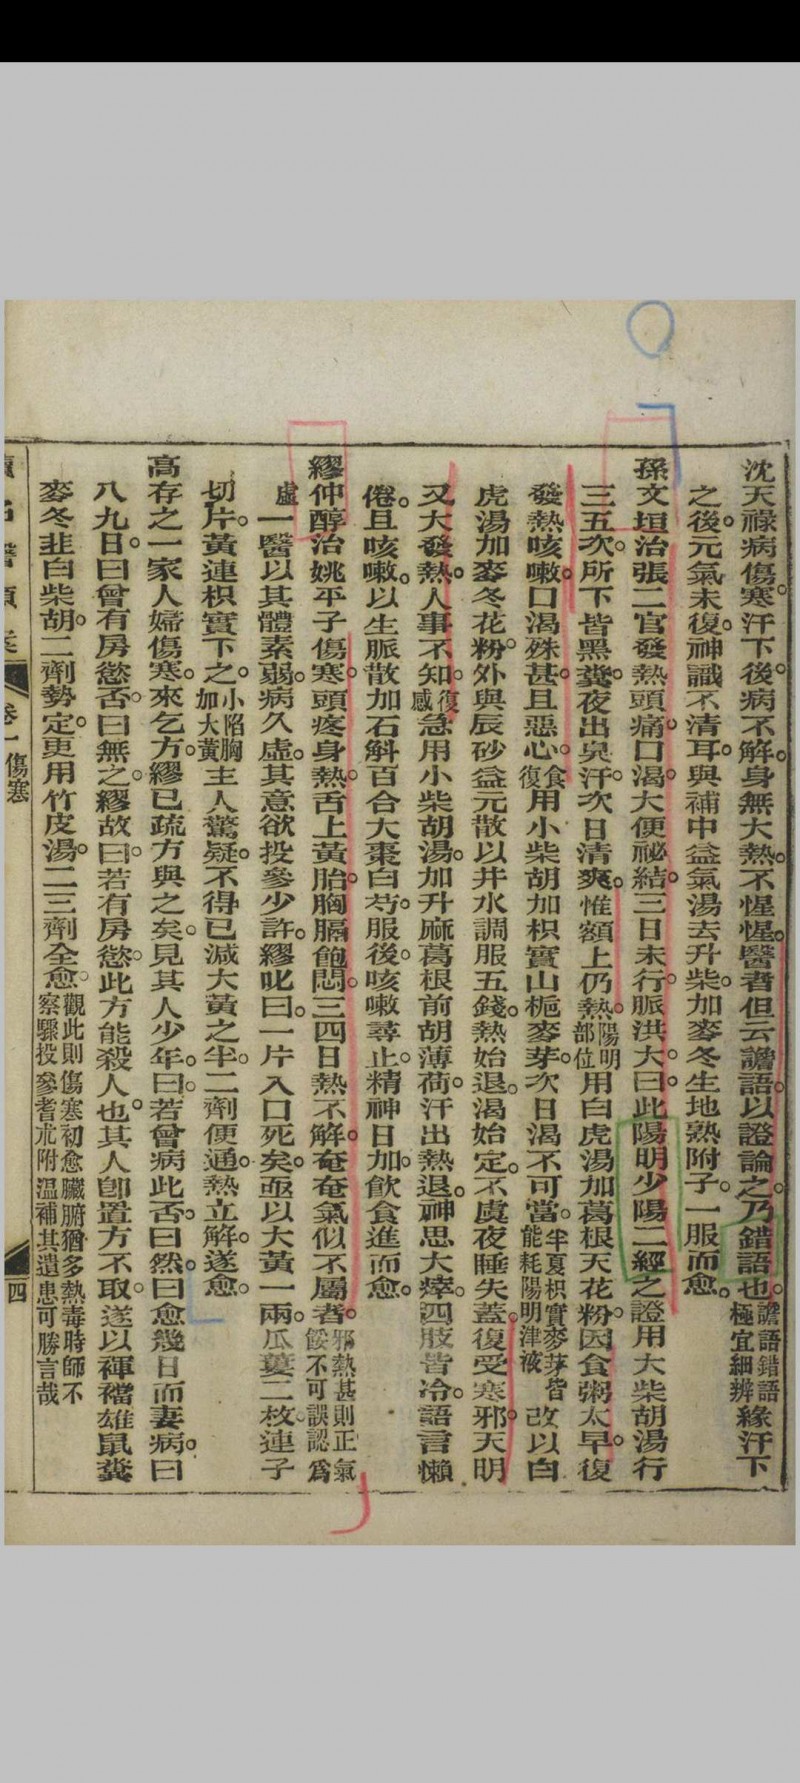 沈天祿病傷寒。汗下後。病不解。身無大熱。不惺惺。醫者但云譫語。以證論之。乃錯語也。譫語錯語極宜細辨緣汗下
之後。元氣未復。神識不清耳。與補中益氣湯去升柴。加麥冬生地熟附子。一服而愈。
孫文垣治張二官發熱頭痛。口渴。大便祕結。三日未行。脈洪大。曰。此陽明少陽二經之證。用大柴胡湯行
三五次。所下皆黑糞。夜出臭汗。次日清爽。惟額上仍熱。陽明部位用白虎湯加葛根天花粉。因食粥太早。復
發熱咳嗽。口渴殊甚。且惡心。食復用小柴胡加枳實山梔麥芽。次日渴不可當。半夏枳實麥芽皆能耗陽明津液改以白
虎湯加麥冬花粉。外與辰砂益元散以井水調服五錢。熱始退。渴始定。不虞夜睡失蓋。復受寒邪。天明
又大發熱。人事不知。復感急用小柴胡湯。加升麻葛根前胡薄荷。汗出熱退。神思大瘁。四肢皆冷。語言懶
倦。且咳嗽。以生脈散加石斛百合大棗白芍服後。咳嗽尋止。精神日加。飲食進而愈。
繆仲醇治姚平子傷寒。頭疼身熱。舌上黃胎。胸膈飽悶。三四日熱不解。奄奄氣似不屬者。邪熱甚則正氣餒不可誤認爲
虛一醫以其體素弱。病久虛。其意欲投參少許。繆叱曰。一片入口死矣。亟以大黃一兩。瓜蔞二枚。連子
切片。黃連枳實下之。小陷胸加大黃主人驚疑。不得已減大黃之半。二劑便通。熱立解。遂愈。
高存之一家人婦傷寒。來乞方。繆已疏方與之矣。見其人少年。曰。若曾病此否。曰。然。曰愈幾日而妻病。曰
八九日。曰曾有房慾否。曰無之。繆故曰。若有房慾。此方能殺人也。其人卽置方不取。遂以褌襠雄鼠糞
麥冬韭白柴胡。二劑勢定。更用竹皮湯。二三劑全愈。觀此則傷寒初愈臟腑猶多熱毒時師不察驟投參耆朮附溫補其遺患可勝言哉
卷一 傷寒
四